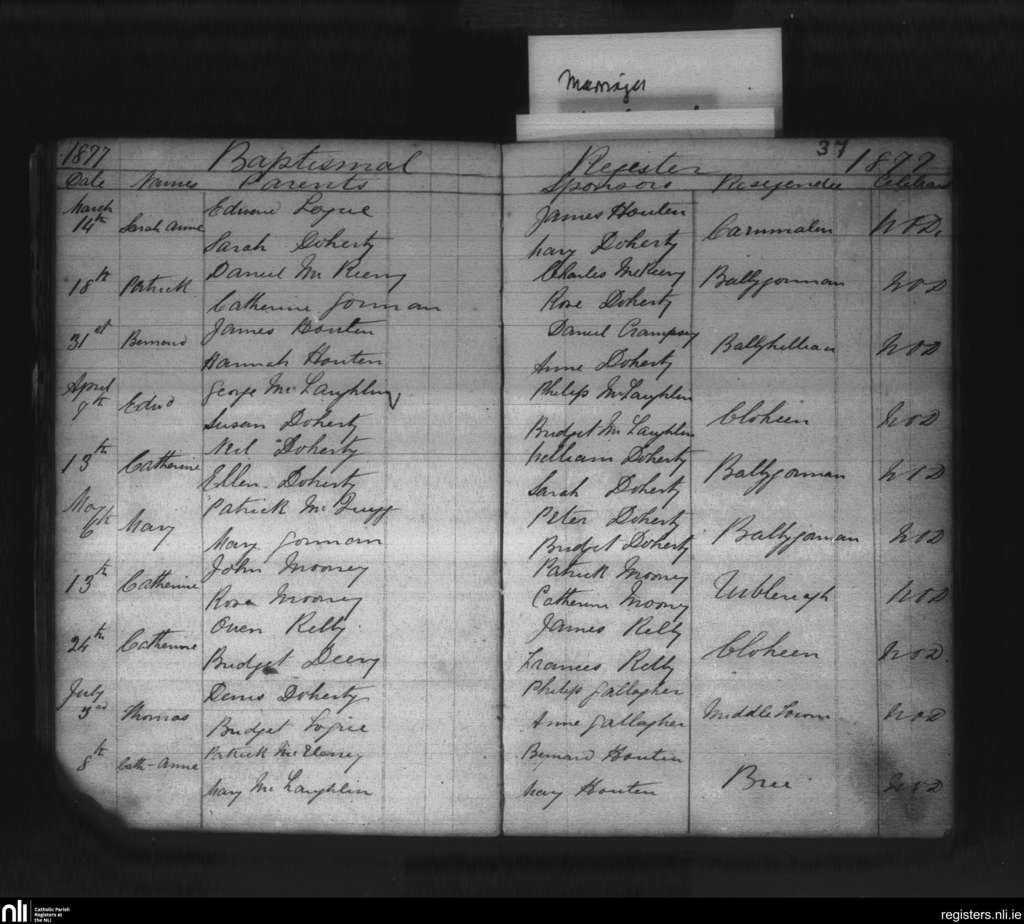 Marriages
37
1877 Baptismal Register 1877
Date Names Parents Sponsors Residence
March Edward Logue James Houten
14th Sarah Anne Carnmalin W O D.
Sarah Doherty Mary Doherty
18th Patrick Daniel Charles Ballygorman W O D
Catherine Gorman Rose Doherty
31st Bernard James Houten Daniel Crampsey Ballyhillian W O D
Hannah Houten Anne Doherty
April George McLaughlin Philip McLaughlin
8th Edwd Cloheen W O D
Susan Doherty Bridget McLaughlin
13th Catherine Neil Doherty William Doherty Ballygorman W O D
Ellen Doherty Sarah Doherty
May Patrick Peter Doherty
6th Mary Ballygorman W O D
Mary Gorman Bridget Doherty
13th Catherine John Mooney Patrick Mooney W O D
Rose Mooney Catherine Mooney
24th Catherine Owen Kelly James Kelly Cloheen W O D.
Bridget Deery Frances Kelly
July Denis Doherty Philip Gallagher
3rd Thomas Middle Town W O D
Bridget Logue Anne Gallagher
8th Cath-Anne Patrick Bernard Houten Bree W O D
Mary McLaughlin Mary Houten
nli
Catholic Parish
Registers at
the NLI
registers.nli.ie